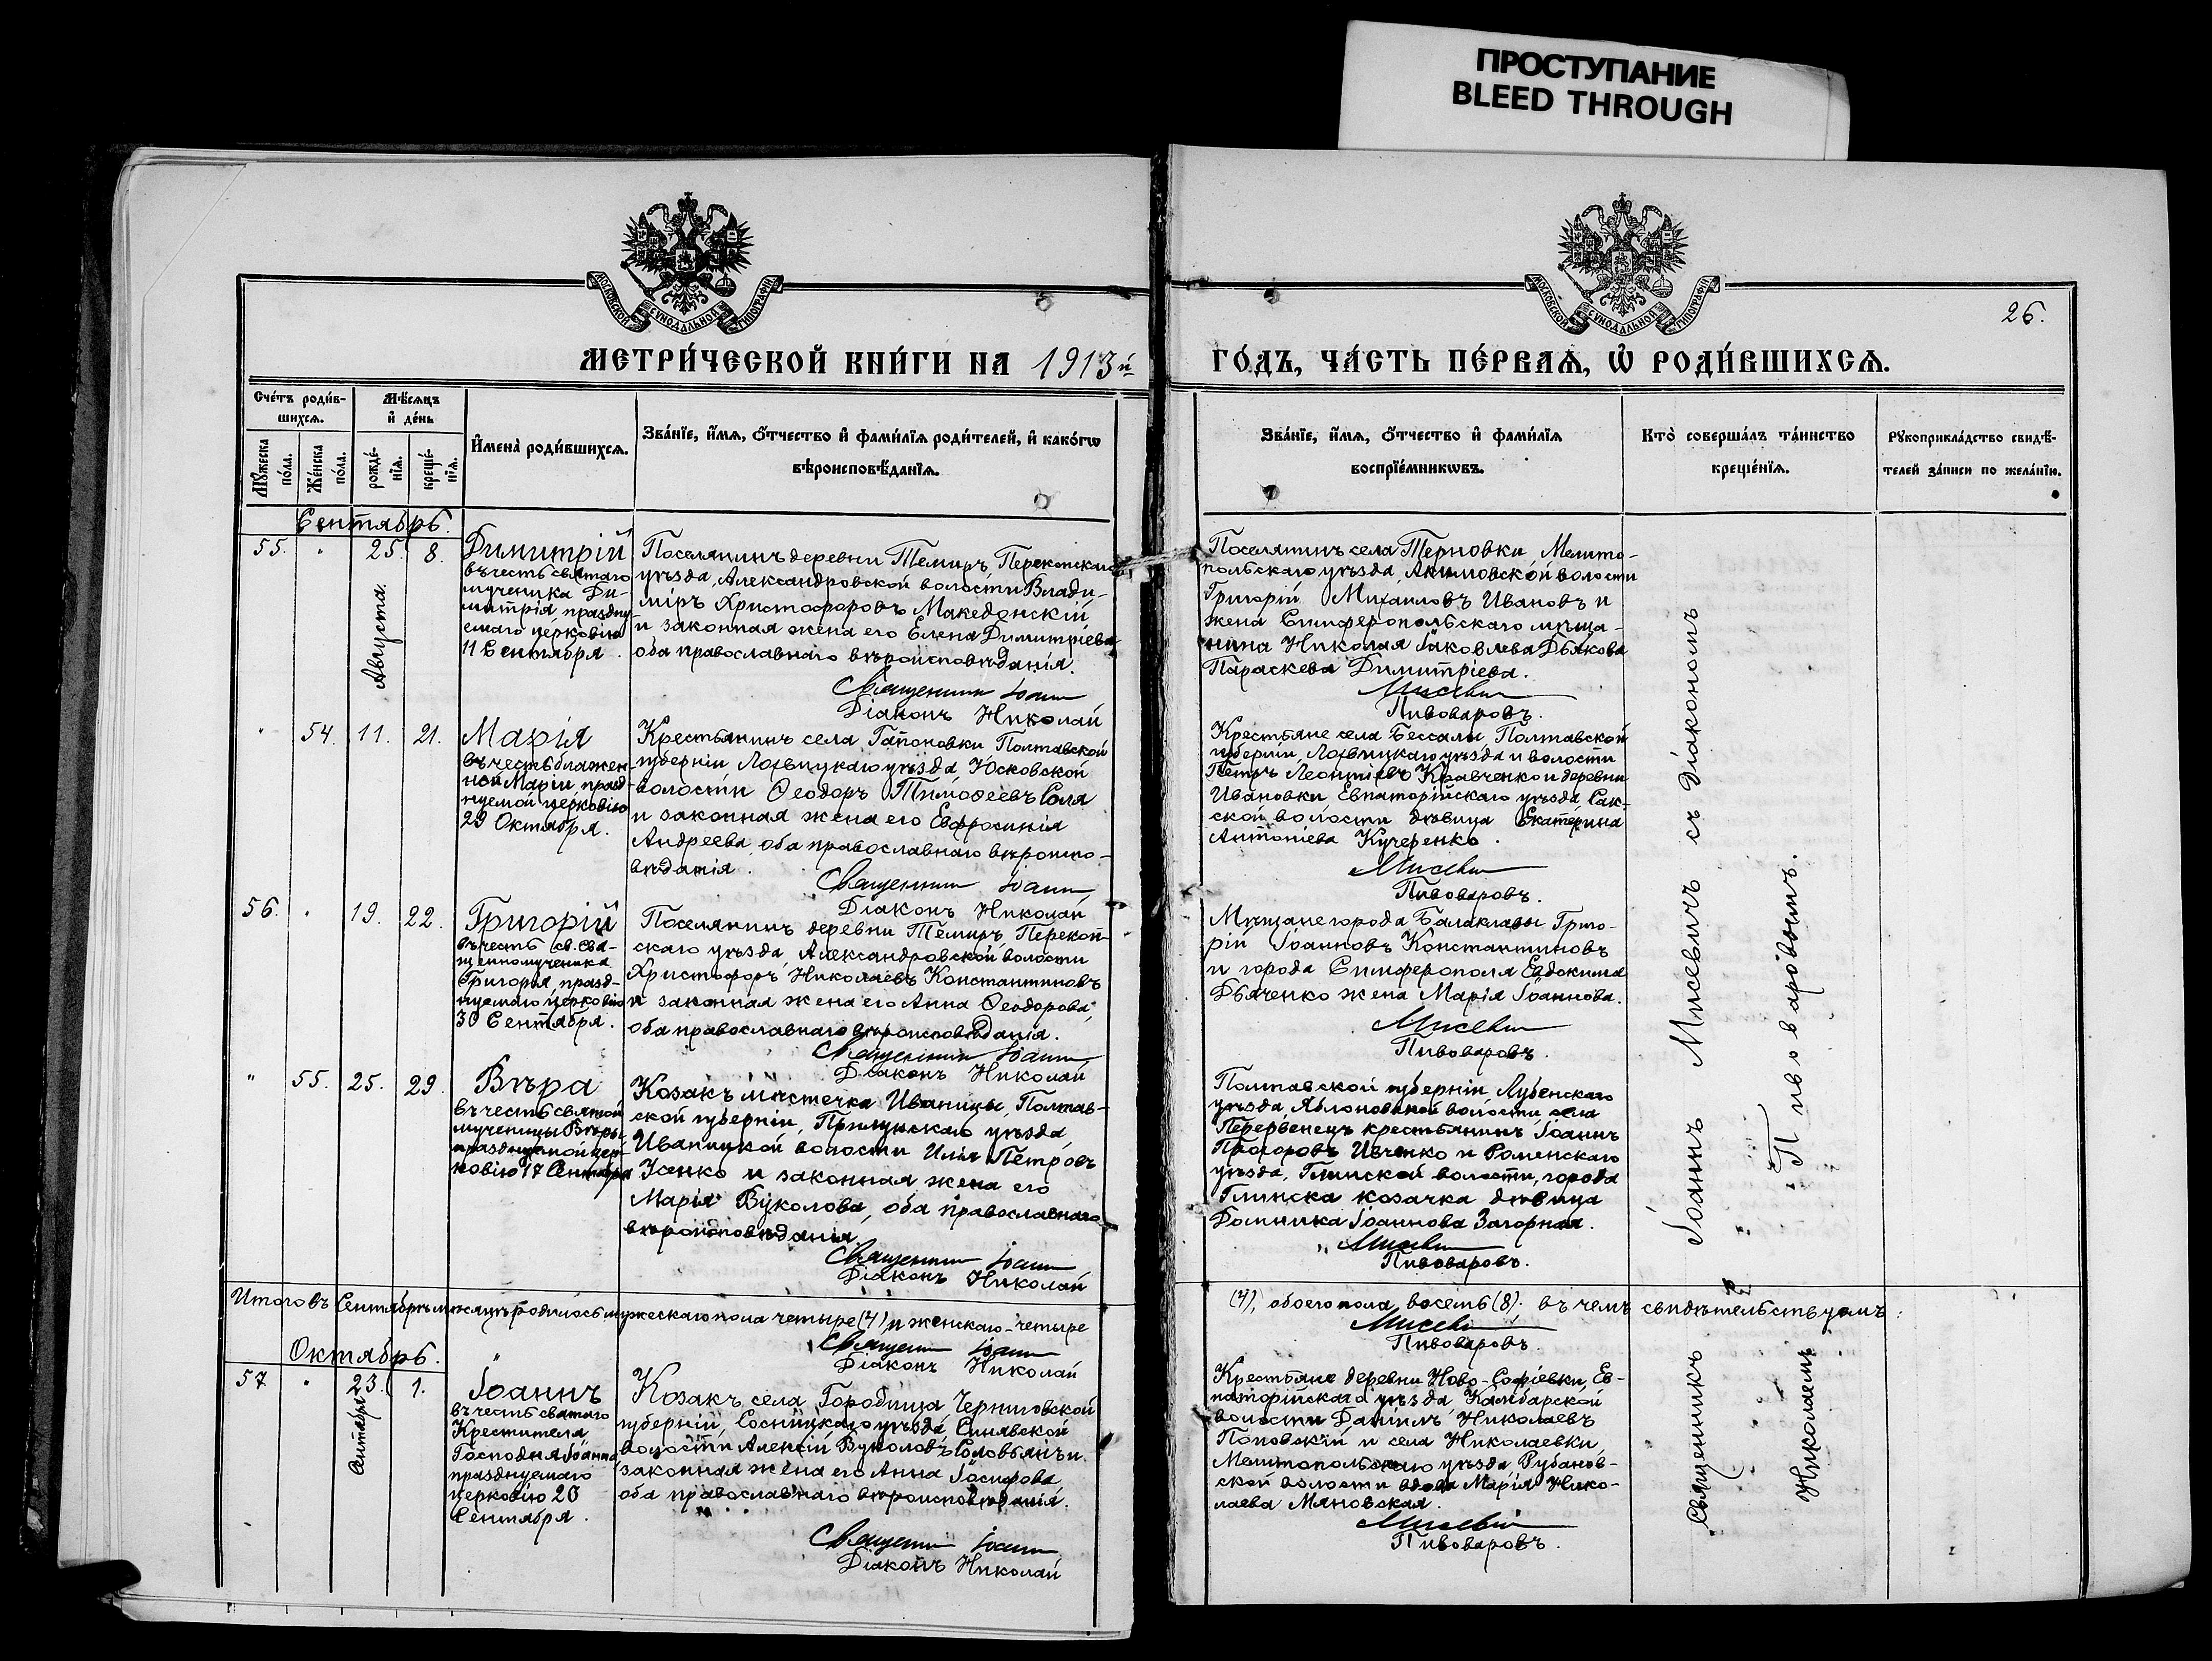 ПРОСТУПАНИЕ
BLEED THROUGH
МОСКОВСКОЙ СѴНОДАЛЬНОЙ ТИПОГРАФІИ
МОСКОВСКОЙ СѴНОДАЛЬНОЙ ТИПОГРАФІИ
26.
МЕТРИ́ЧЕСКОЙ КНИ́ГИ НА 1913 й
ГО́ДЪ, ЧА́СТЬ ПЕ́РВАѦ, Ѡ҆ РОДИ́ВШИХСѦ.
Сче́тъ роди́в-
шихсѧ.
Мѣ́сѧцъ
и҆ де́нь
Мꙋ́жеска
по́ла.
Же́нска
по́ла.
рожде́-
нїѧ.
креще́-
нїѧ.
И҆мена̀ роди́вшихсѧ.
Зва́нїе, и҆́мѧ, ѻ҆́тчество и҆ фамѝлїѧ роди́телей, и҆ како́гѡ
вѣроисповѣ́данїѧ.
Зва́нїе, и҆́мѧ, ѻ҆́тчество и҆ фамѝлїѧ
воспрїе́мникѡвъ.
Кто̀ соверша́лъ та́инство
креще́нїѧ.
Рꙋкоприкла́дство свидѣ́-
телей за́писи по жела́нїю.
Сентябрь.
55. " 25. 8.
Августа.
Димитрій
въ честь святаго
мученика Ди-
митрія, праздну-
емаго церковію
11 Сентября.
Поселянинъ деревни Темиръ, Перекопскаго
уѣзда, Александровской волости Влади-
міръ Христофоровъ Македонскій
и законная жена его Елена Димитріева
оба православнаго вѣроисповѣданія.
Священникъ Іоаннъ
Діаконъ Николай
Поселянинъ села Терновки, Мелито-
польскаго уѣзда, Акимовской волости
Григорій Михаиловъ Ивановъ и
жена Симферопольскаго мѣща-
нина Николая Іаковлева Дьякова
Параскева Димитріева.
Мисевичъ
Пивоваровъ.
" 54. 11. 21.
Марія
въ честь блажен-
ной Маріи, празд-
нуемой церковію
29 Октября.
Крестьянинъ села Гапоновки Полтавской
губерніи Лохвицкаго уѣзда, Юсковской
волости Ѳеодоръ Тимоѳеевъ Соля
и законная жена его Евфросинія
Андреева, оба православнаго вѣроиспо-
вѣданія.
Священникъ Іоаннъ
Діаконъ Николай
Крестьяне села Бессалы Полтавской
губерніи, Лохвицкаго уѣзда и волости
Петръ Леонтіевъ Кравченко и деревни
Ивановки, Евпаторійскаго уѣзда, Сак-
ской волости дѣвица Екатерина
Антоніева Кучеренко.
Мисевичъ
Пивоваровъ.
56. " 19. 22.
Григорій
въ честь св. свя-
щенномученика
Григорія, празд-
нуемаго церковію
30 Сентября.
Поселянинъ деревни Темиръ, Перекоп-
скаго уѣзда, Александровской волости
Христофоръ Николаевъ Константиновъ
и законная жена его Анна Ѳеодорова,
оба православнаго вѣроисповѣданія.
Священникъ Іоаннъ
Діаконъ Николай
Мѣщане города Балаклавы Григо-
рій Іоанновъ Константиновъ
и города Симферополя Евдокима
Дьяченко жена Марія Іоаннова.
Мисевичъ
Пивоваровъ.
" 55. 25. 29.
Вѣра
въ честь святой
мученицы Вѣры,
празднуемой цер-
ковію 17 Сентября
Козакъ мѣстечка Иваницы, Полтав-
ской губерніи, Прилукскаго уѣзда,
Иваницкой волости Илія Петровъ
Усенко и законная жена его
Марія Вуколова, оба православнаго
вѣроисповѣданія.
Священникъ Іоаннъ
Діаконъ Николай
Полтавской губерніи, Лубенскаго
уѣзда, Яблоновской волости, села
Перервенецъ крестьянинъ Іоаннъ
Прохоровъ Ивченко и Роменскаго
уѣзда, Глинской волости, города
Глинска козачка дѣвица
Домника Іоаннова Загорная.
Мисевичъ
Пивоваровъ.
Итого въ Сентябрѣ мѣсяцѣ родилось мужескаго пола четыре (4) и женскаго - четыре
(4), обоего пола восемь (8). въ чемъ свидѣтельствуемъ:
Священникъ Іоаннъ
Діаконъ Николай
Мисевичъ
Пивоваровъ.
Октябрь.
57 " 23. 1.
Сентября
Іоаннъ
въ честь святаго
Крестителя
Господня Іоанна
празднуемаго
церковію 20
Сентября.
Козакъ села Городища Черниговской
губерніи, Сосницкаго уѣзда, Синявской
волости Алексій Вуколовъ Соловьянъ и
законная жена его Анна Іосифова
оба православнаго вѣроисповѣданія.
Священникъ Іоаннъ
Діаконъ Николай
Крестьяне деревни Ново-Софіевки, Ев-
паторійскаго уѣзда, Камбарской
волости Даніилъ Николаевъ
Поповскій и села Николаевки,
Мелитопольскаго уѣзда Рубанов-
ской волости вдова Марія Нико-
лаева Мяновская.
Мисевичъ
Пивоваровъ.
Священникъ Іоаннъ Мисевичъ съ Діакономъ
Николаемъ Пивоваровымъ.